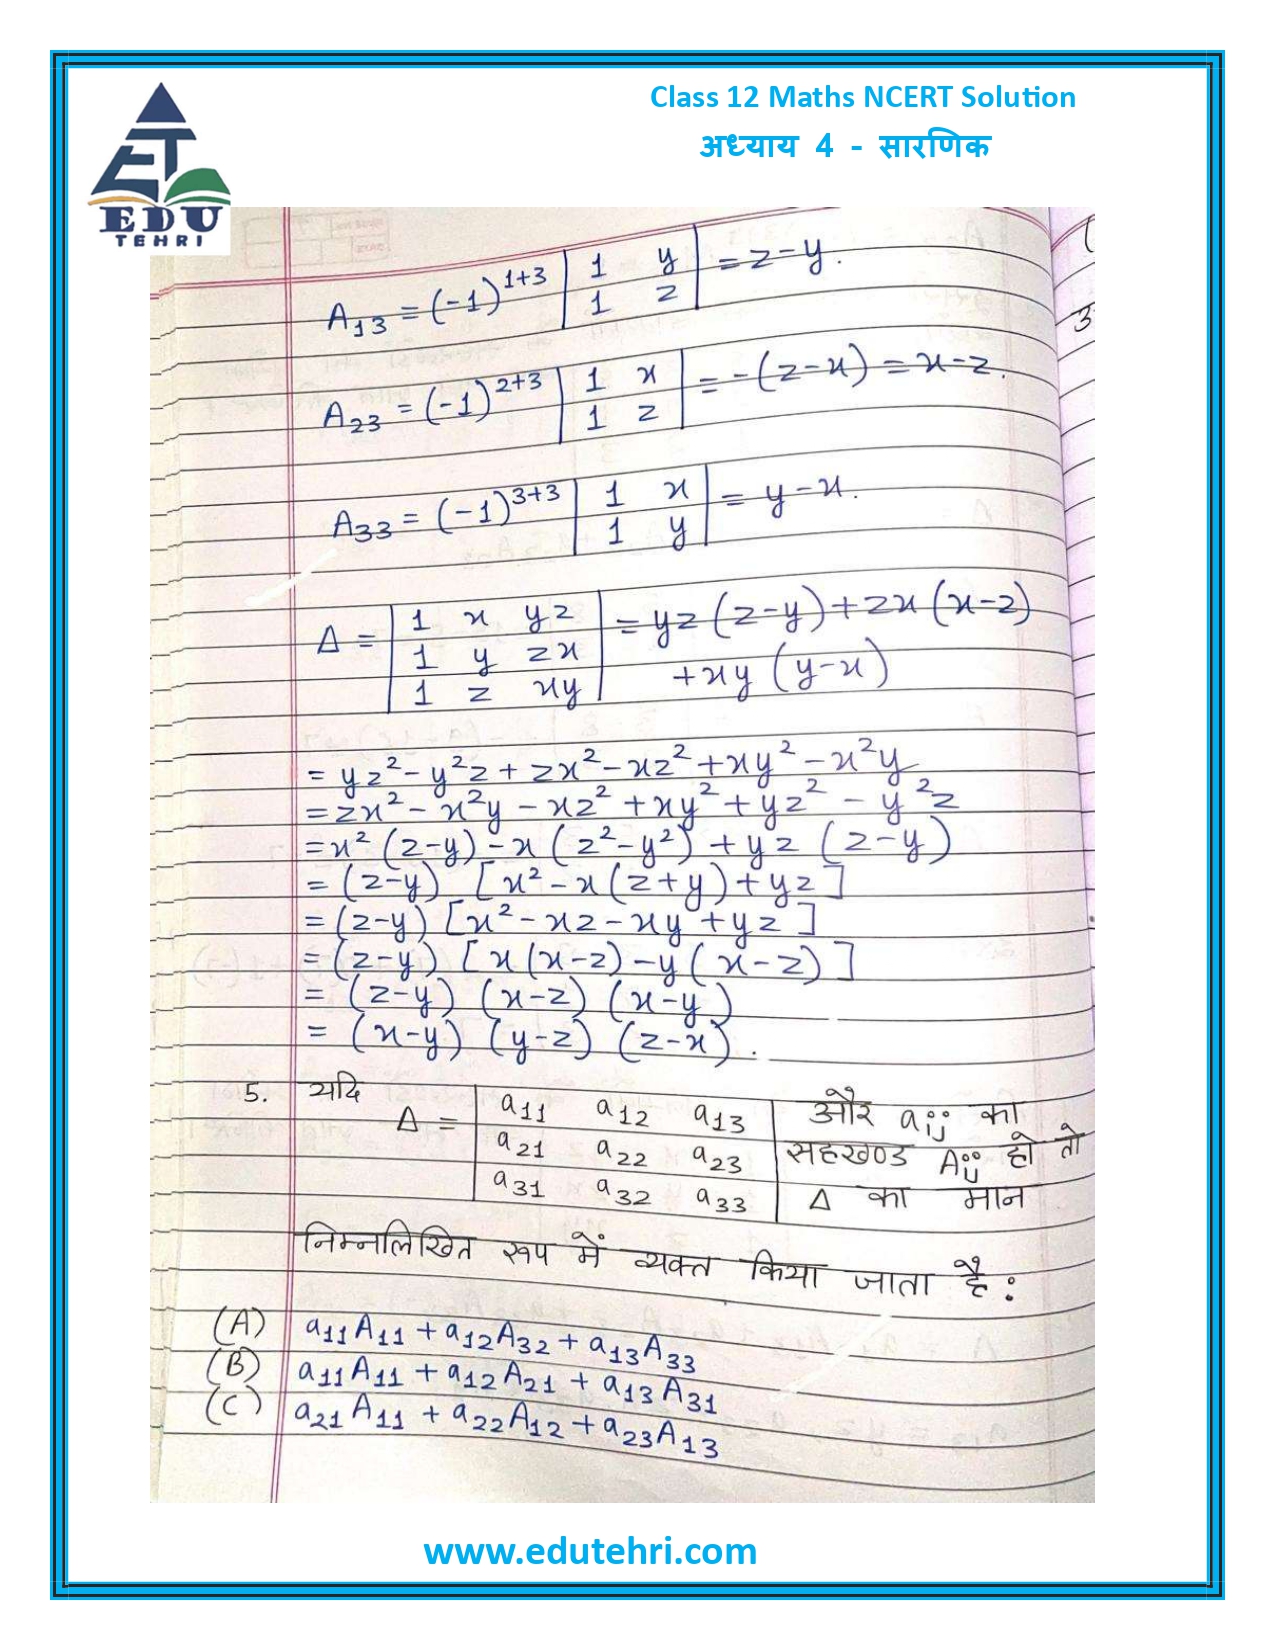 Class 12 Maths NCERT Solution
अध्याय 4 - सारणिक
ET
EDU
TEHRI
A₁₃ = (-1)¹⁺³ | 1 y | = z-y.
| 1 z |
A₂₃ = (-1)²⁺³ | 1 x | = -(z-x) = x-z.
| 1 z |
A₃₃ = (-1)³⁺³ | 1 x | = y-x.
| 1 y |
Δ = | 1 x yz | = yz(z-y)+zx(x-z)
| 1 y zx | +xy(y-x)
| 1 z xy |
= yz²-y²z+zx²-xz²+xy²-x²y
= zx²-x²y-xz²+xy²+yz²-y²z
= x²(z-y)-x(z²-y²)+yz(z-y)
= (z-y) [x²-x(z+y)+yz]
= (z-y) [x²-xz-xy+yz]
= (z-y) [x(x-z)-y(x-z)]
= (z-y) (x-z) (x-y)
= (x-y) (y-z) (z-x).
5. यदि Δ = | a₁₁ a₁₂ a₁₃ | और aᵢⱼ का
| a₂₁ a₂₂ a₂₃ | सहखण्ड Aᵢⱼ हो तो
| a₃₁ a₃₂ a₃₃ | Δ का मान
निम्नलिखित रूप में व्यक्त किया जाता है:
(A) a₁₁A₁₁ + a₁₂A₃₂ + a₁₃A₃₃
(B) a₁₁A₁₁ + a₁₂A₂₁ + a₁₃A₃₁
(C) a₂₁A₁₁ + a₂₂A₁₂ + a₂₃A₁₃
www.edutehri.com